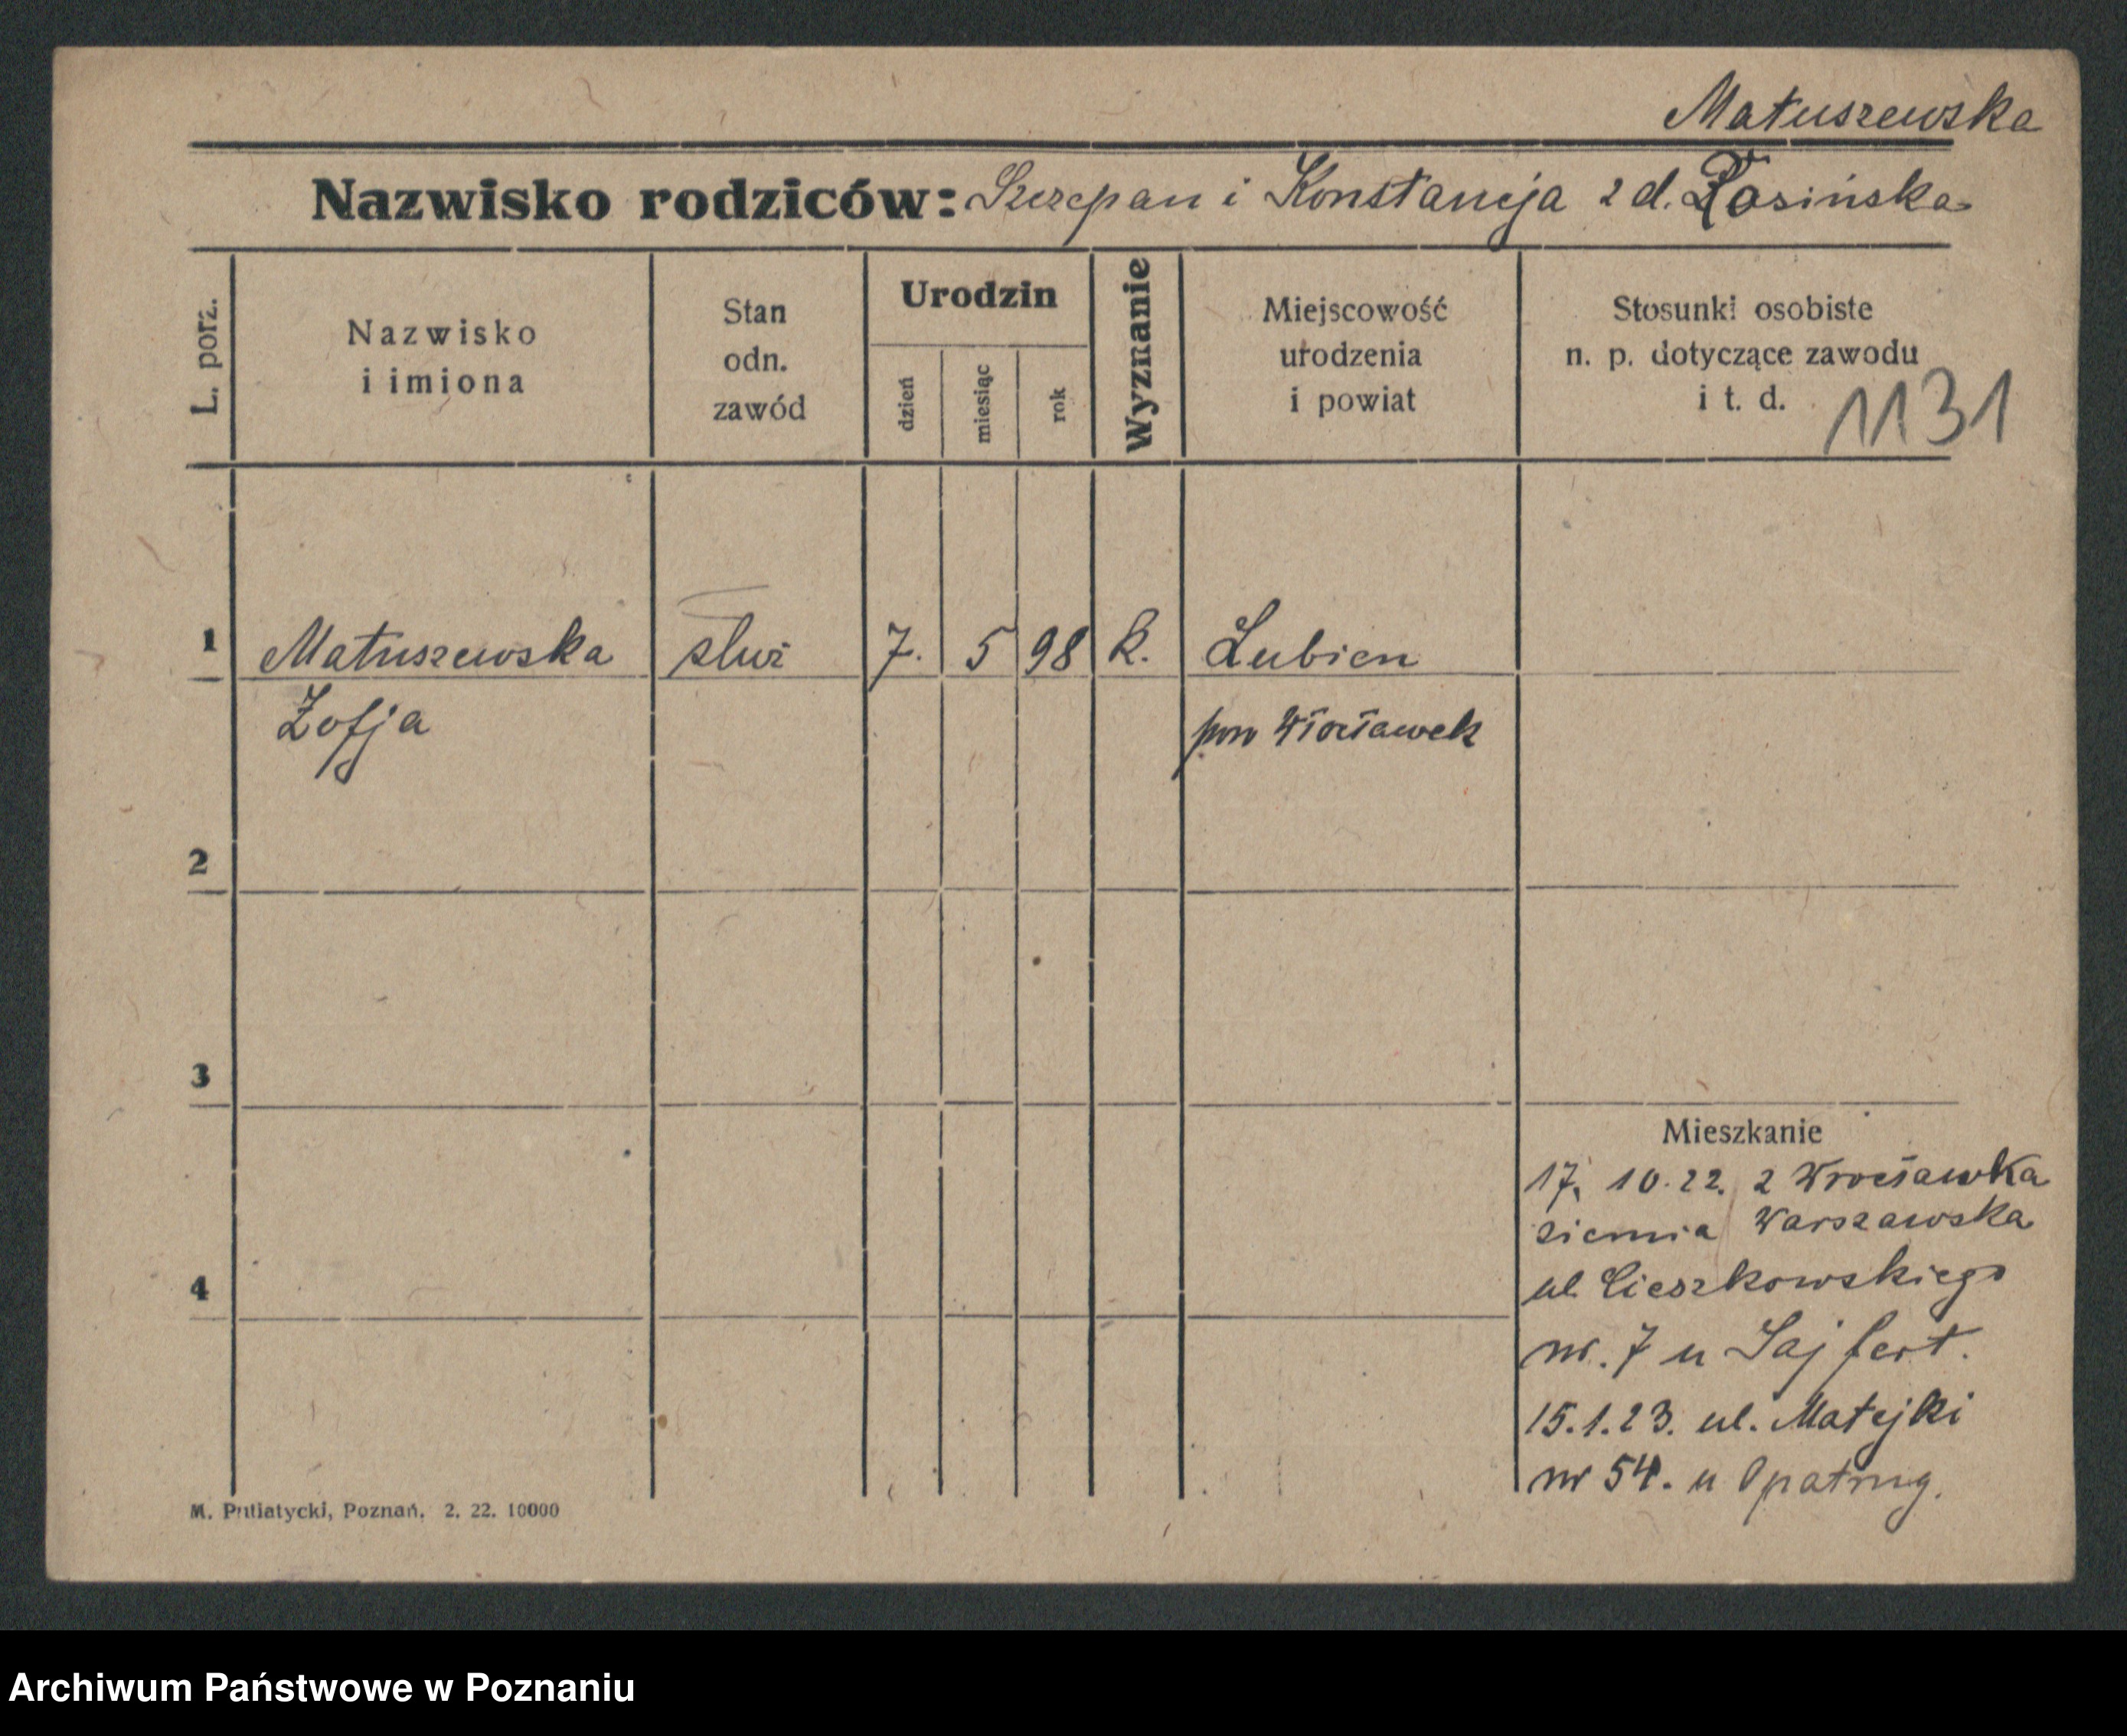 Matuszewska
Nazwisko rodziców: Szczepan i Konstancja z d. Łosińska
L. porz.
Nazwisko
i imiona
Stan
odn.
zawód
Urodzin
dzień
miesiąc
rok
Wyznanie
Miejscowość
urodzenia
i powiat
Stosunki osobiste
n. p. dotyczące zawodu
i t. d.
1131
1 Matuszewska służ 7. 5 98 k. Lubien
Zofja pow Włocławek
2
3
4
Mieszkanie
17. 10.22. z Wrocławka
ziemia Warszawska
ul. Cieszkowskiego
nr. 7 u Sajfert.
15.1.23. ul. Matejki
nr 54. u
M. Putiatycki, Poznań, 2. 22. 10000
Archiwum Państwowe w Poznaniu